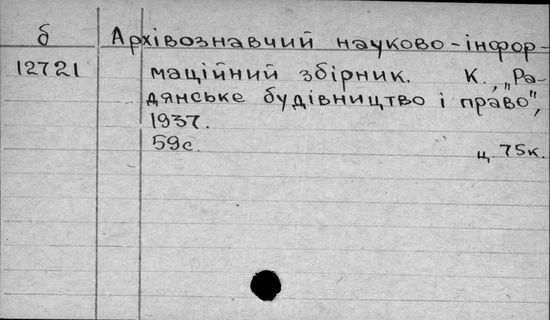 б Архівознавчий науково-інфор-
12721 маційний збірник. К., "Ра-
дянське будівництво і право",
1937.
59с. ц. 75к.